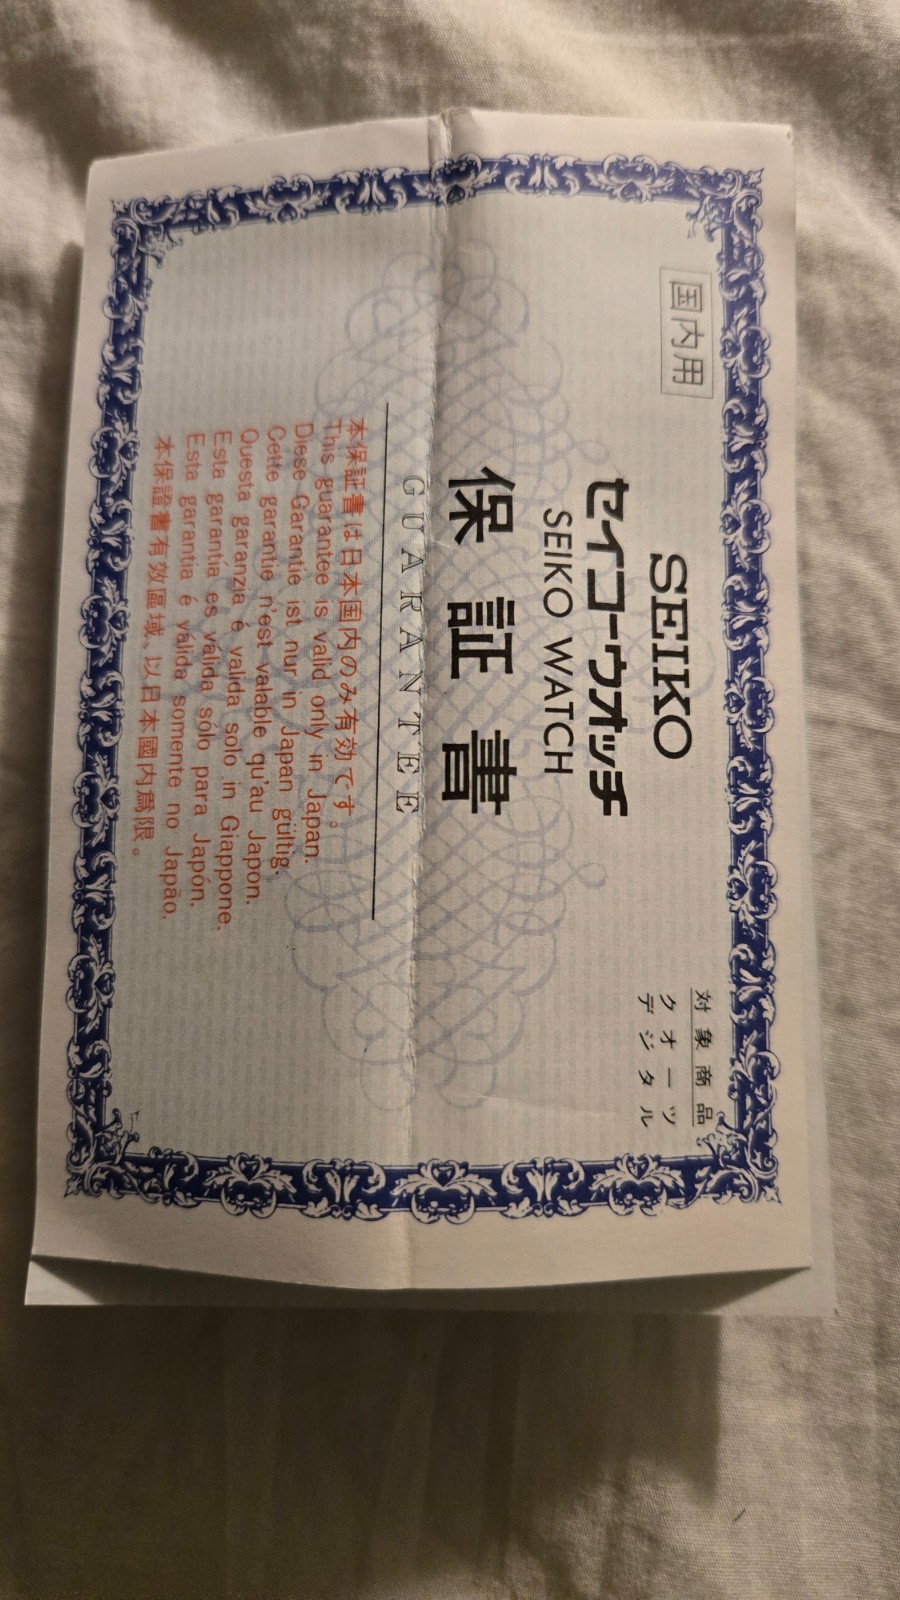 国内用
SEIKO
セイコーウオッチ
SEIKO WATCH
保証書
GUARANTEE
対象商品
クオーツ
デジタル
本保証書は日本国内のみ有効です。
This guarantee is valid only in Japan.
Diese Garantie ist nur in Japan gültig.
Cette garantie n'est valable qu'au Japon.
Questa garanzia é valida solo in Giappone.
Esta garantía es válida sólo para Japón.
Esta garantia é válida somente no Japão.
本保證書有效區域、以日本國内爲限。